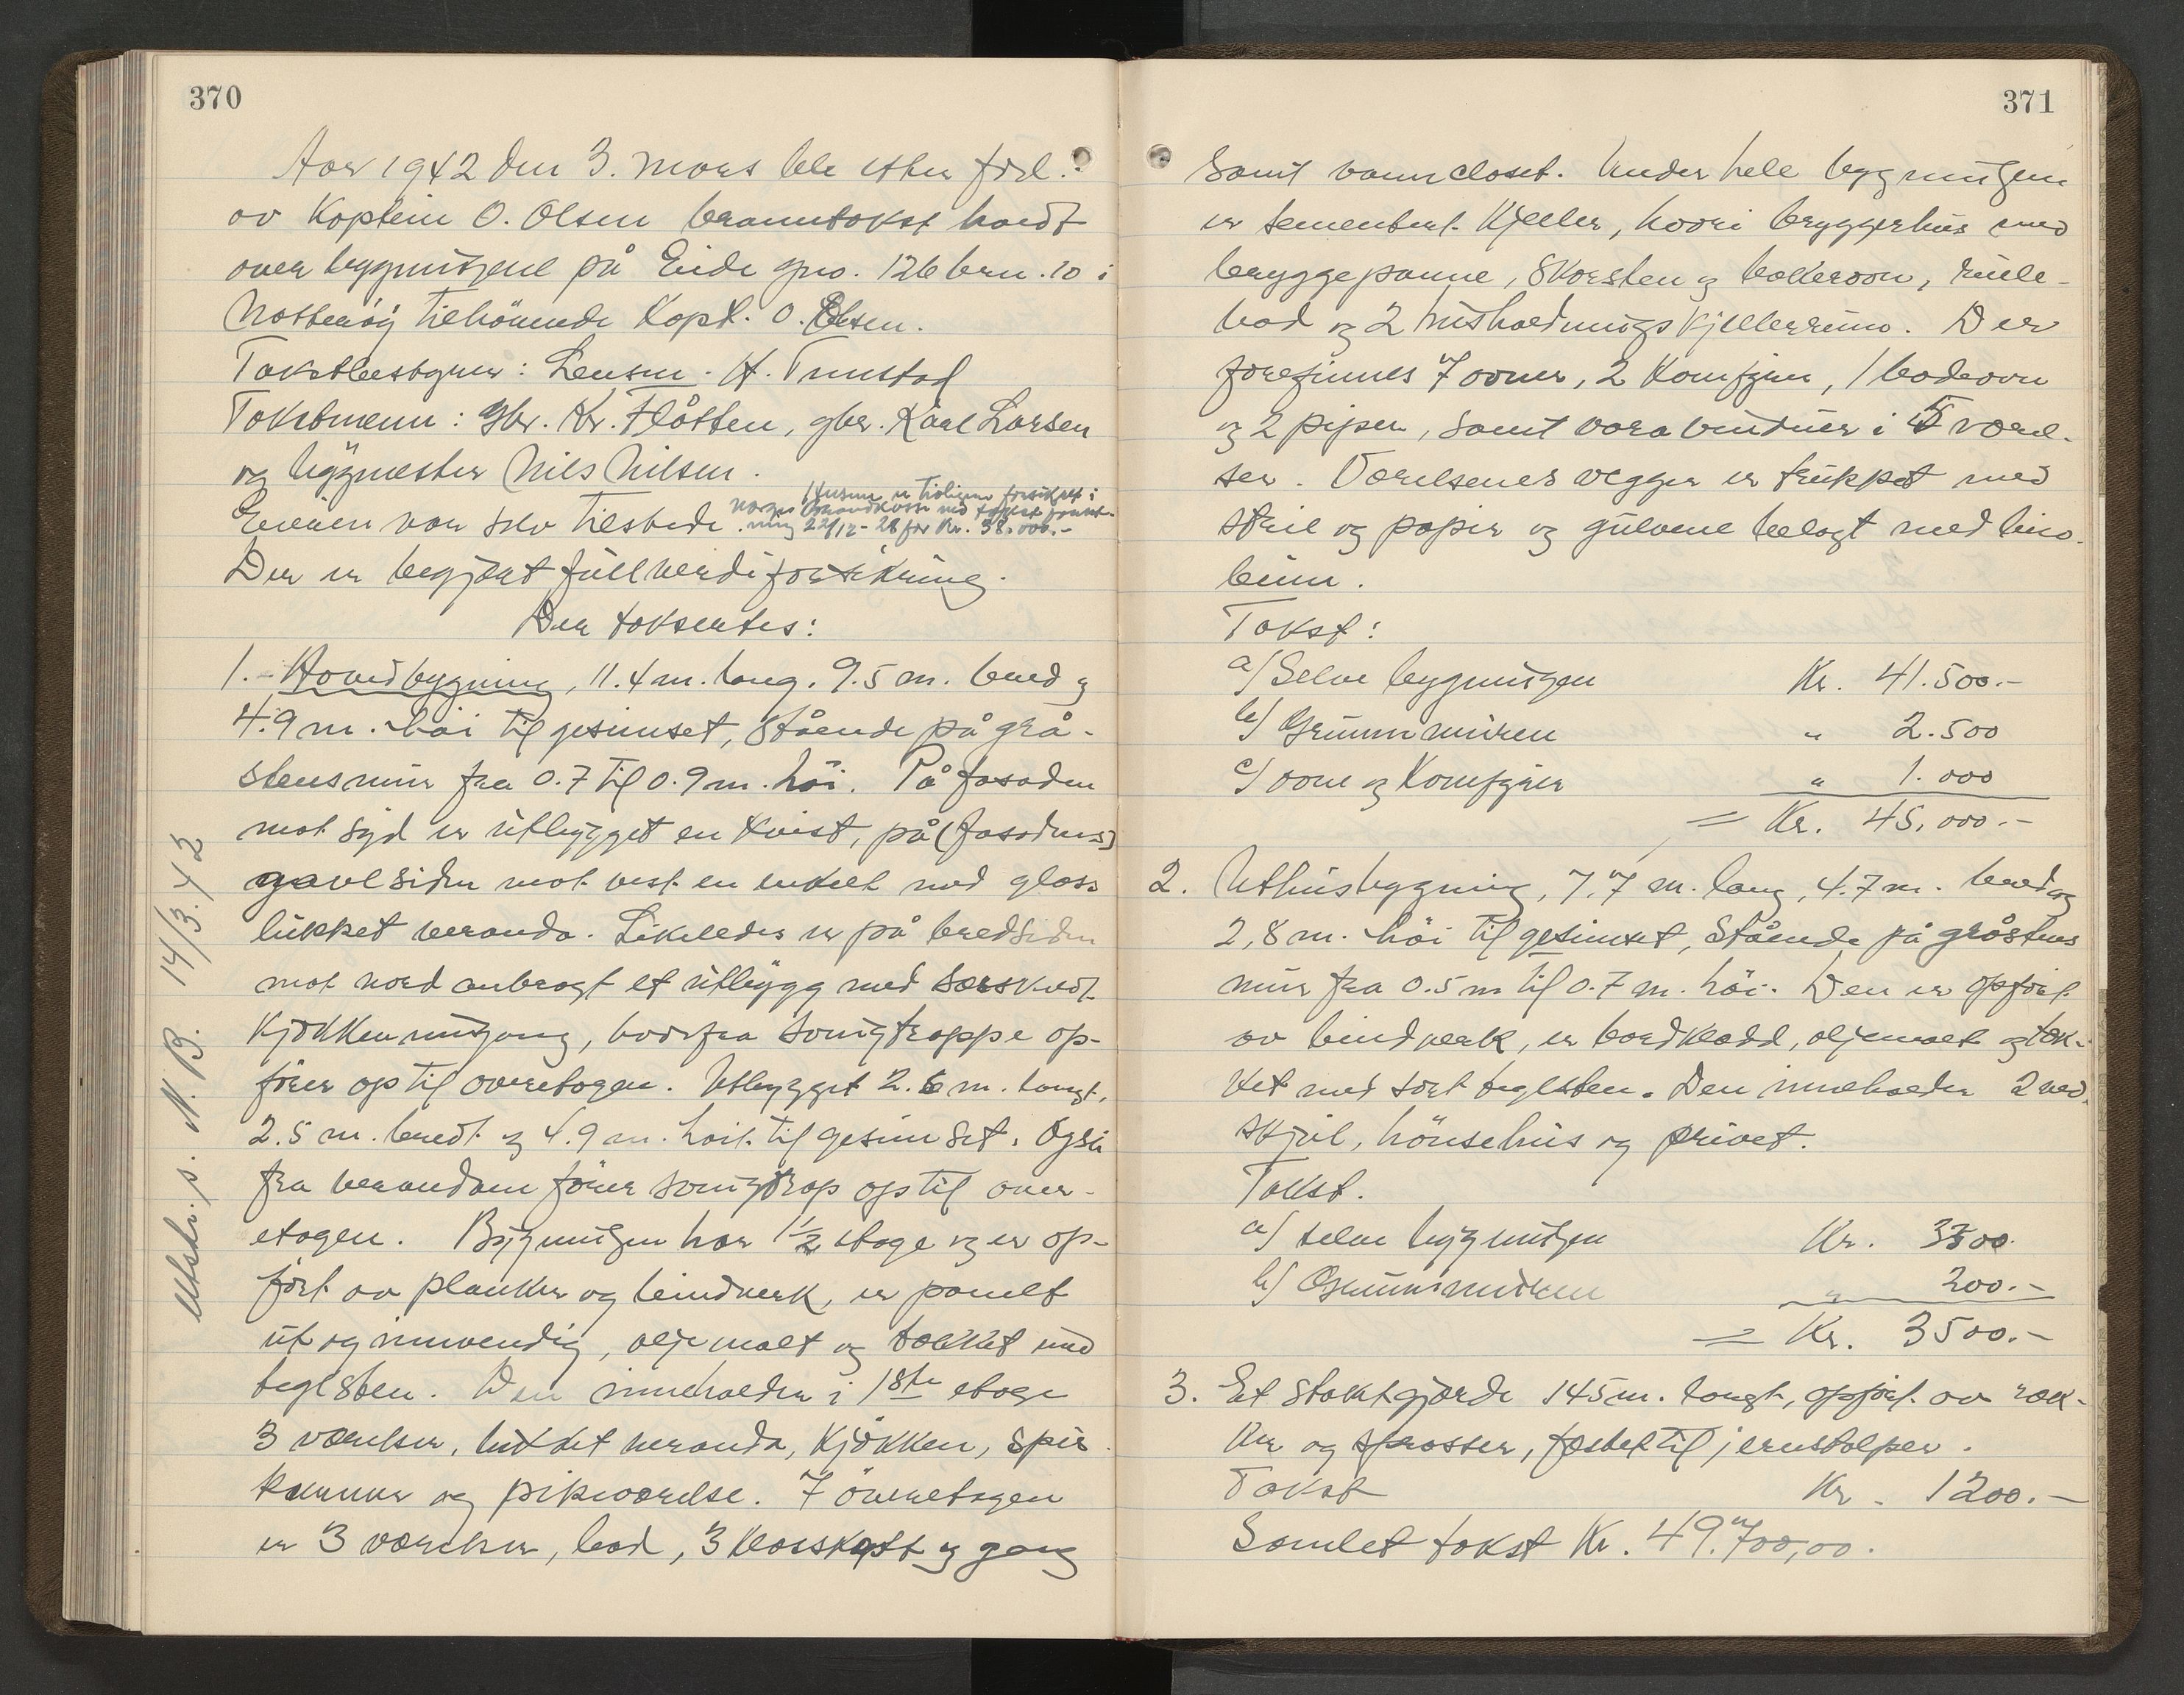 370
Aar 1942 den 3. mars ble etter forl.:
av Kaptein O. Olsen branntakst holdt
over bygningene på Eide gno. 126 brn. 10 i
Nøtterøy tilhørende Kapt. O. Olsen.
Takstbestyrer: Lensm. H. Trustad
Takstmenn: gbr. Kr. Flåtten, gbr. Karl Larsen
og byggmester Nils Nilsen.
Husene er tidligere forsikret i
Norges Brandkasse med takst forret-
ning 22/12-28 for Kr. 38.000.-
Eieren var selv tilstede.
Der er begjært fullverdiforsikring.
Der taksertes:
1.- Hovedbygning, 11.4 m. lang, 9.5 m. bred og
4.9 m. høi til gesimset, stående på grå-
stensmur fra 0.7 til 0.9 m. høi. På fasaden
mot syd er utbygget en kvist, på (fasadens)
gavlsiden mot vest en enkelt med glass
lukket veranda. Likeledes er på bredsiden
mot nord anbragt et utbygg med særskilt
kjøkkeninngang, hvorfra svingtrappe op-
fører op til overetagen. Utbygget 2.6 m. langt,
2.5 m. bredt og 4.9 m. høit til gesimset. Også
fra verandaen fører svingtrap op til over-
etagen. Bygningen har 1½ etage og er op-
ført av planker og bindverk, er panelt
ut og innvendig, oljemalt og tækket med
teglsten. Den inneholder i 1ste etage
3 værelser, lukket veranda, kjøkken, spis
kammer og pikeværelse. I överetagen
er 3 værelser, bad, 3 kleskott og gang
Utskr. s. N. B. 14/3. 42
371
samt vanncloset. Under hele bygningen
er sementert kjeller, hvori bryggerhus med
bryggepanne, skorsten og bakerovn, rulle-
bod og 2 husholdningskjellerrum. Der
forefinnes 7 ovner, 2 komfyrer, 1 badeovn
og 2 piper, samt varevinduer i 5 værel-
ser. Værelsenes vegger er trukket med
strie og papir og gulvene belagt med lino-
leum.
Takst:
a/ Selve bygningen Kr. 41.500.-
b/ Grunnmuren " 2.500
c/ ovne og Komfyrer " 1.000
= Kr. 45.000.-
2. Uthusbygning, 7.7 m. lang, 4.7 m. bred og
2,8 m. høi til gesimset, stående på gråstens
mur fra 0.5 m til 0.7 m. høi. Den er opført
av bindverk, er bordkledd, oljemalt og tæk-
ket med sort teglsten. Den inneholder 2 ved-
skjul, hönsehus og privet.
Takst.
a/ selve bygningen Kr. 3300.
b/ Grunnmuren " 200.-
= Kr. 3500.-
3. Et stakitgjærde 145 m. langt, opført av ræk-
ker og sprosser, festet til jernstolper.
Takst Kr. 1200.-
Samlet takst Kr. 49.700,00.